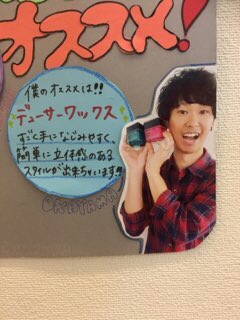 オススメ!
僕のオススメは!!
デューサーワックス
すごく手になじみやすく、
簡単に立体感のある
スタイルが出来ちゃいます!!
OKAYAMA